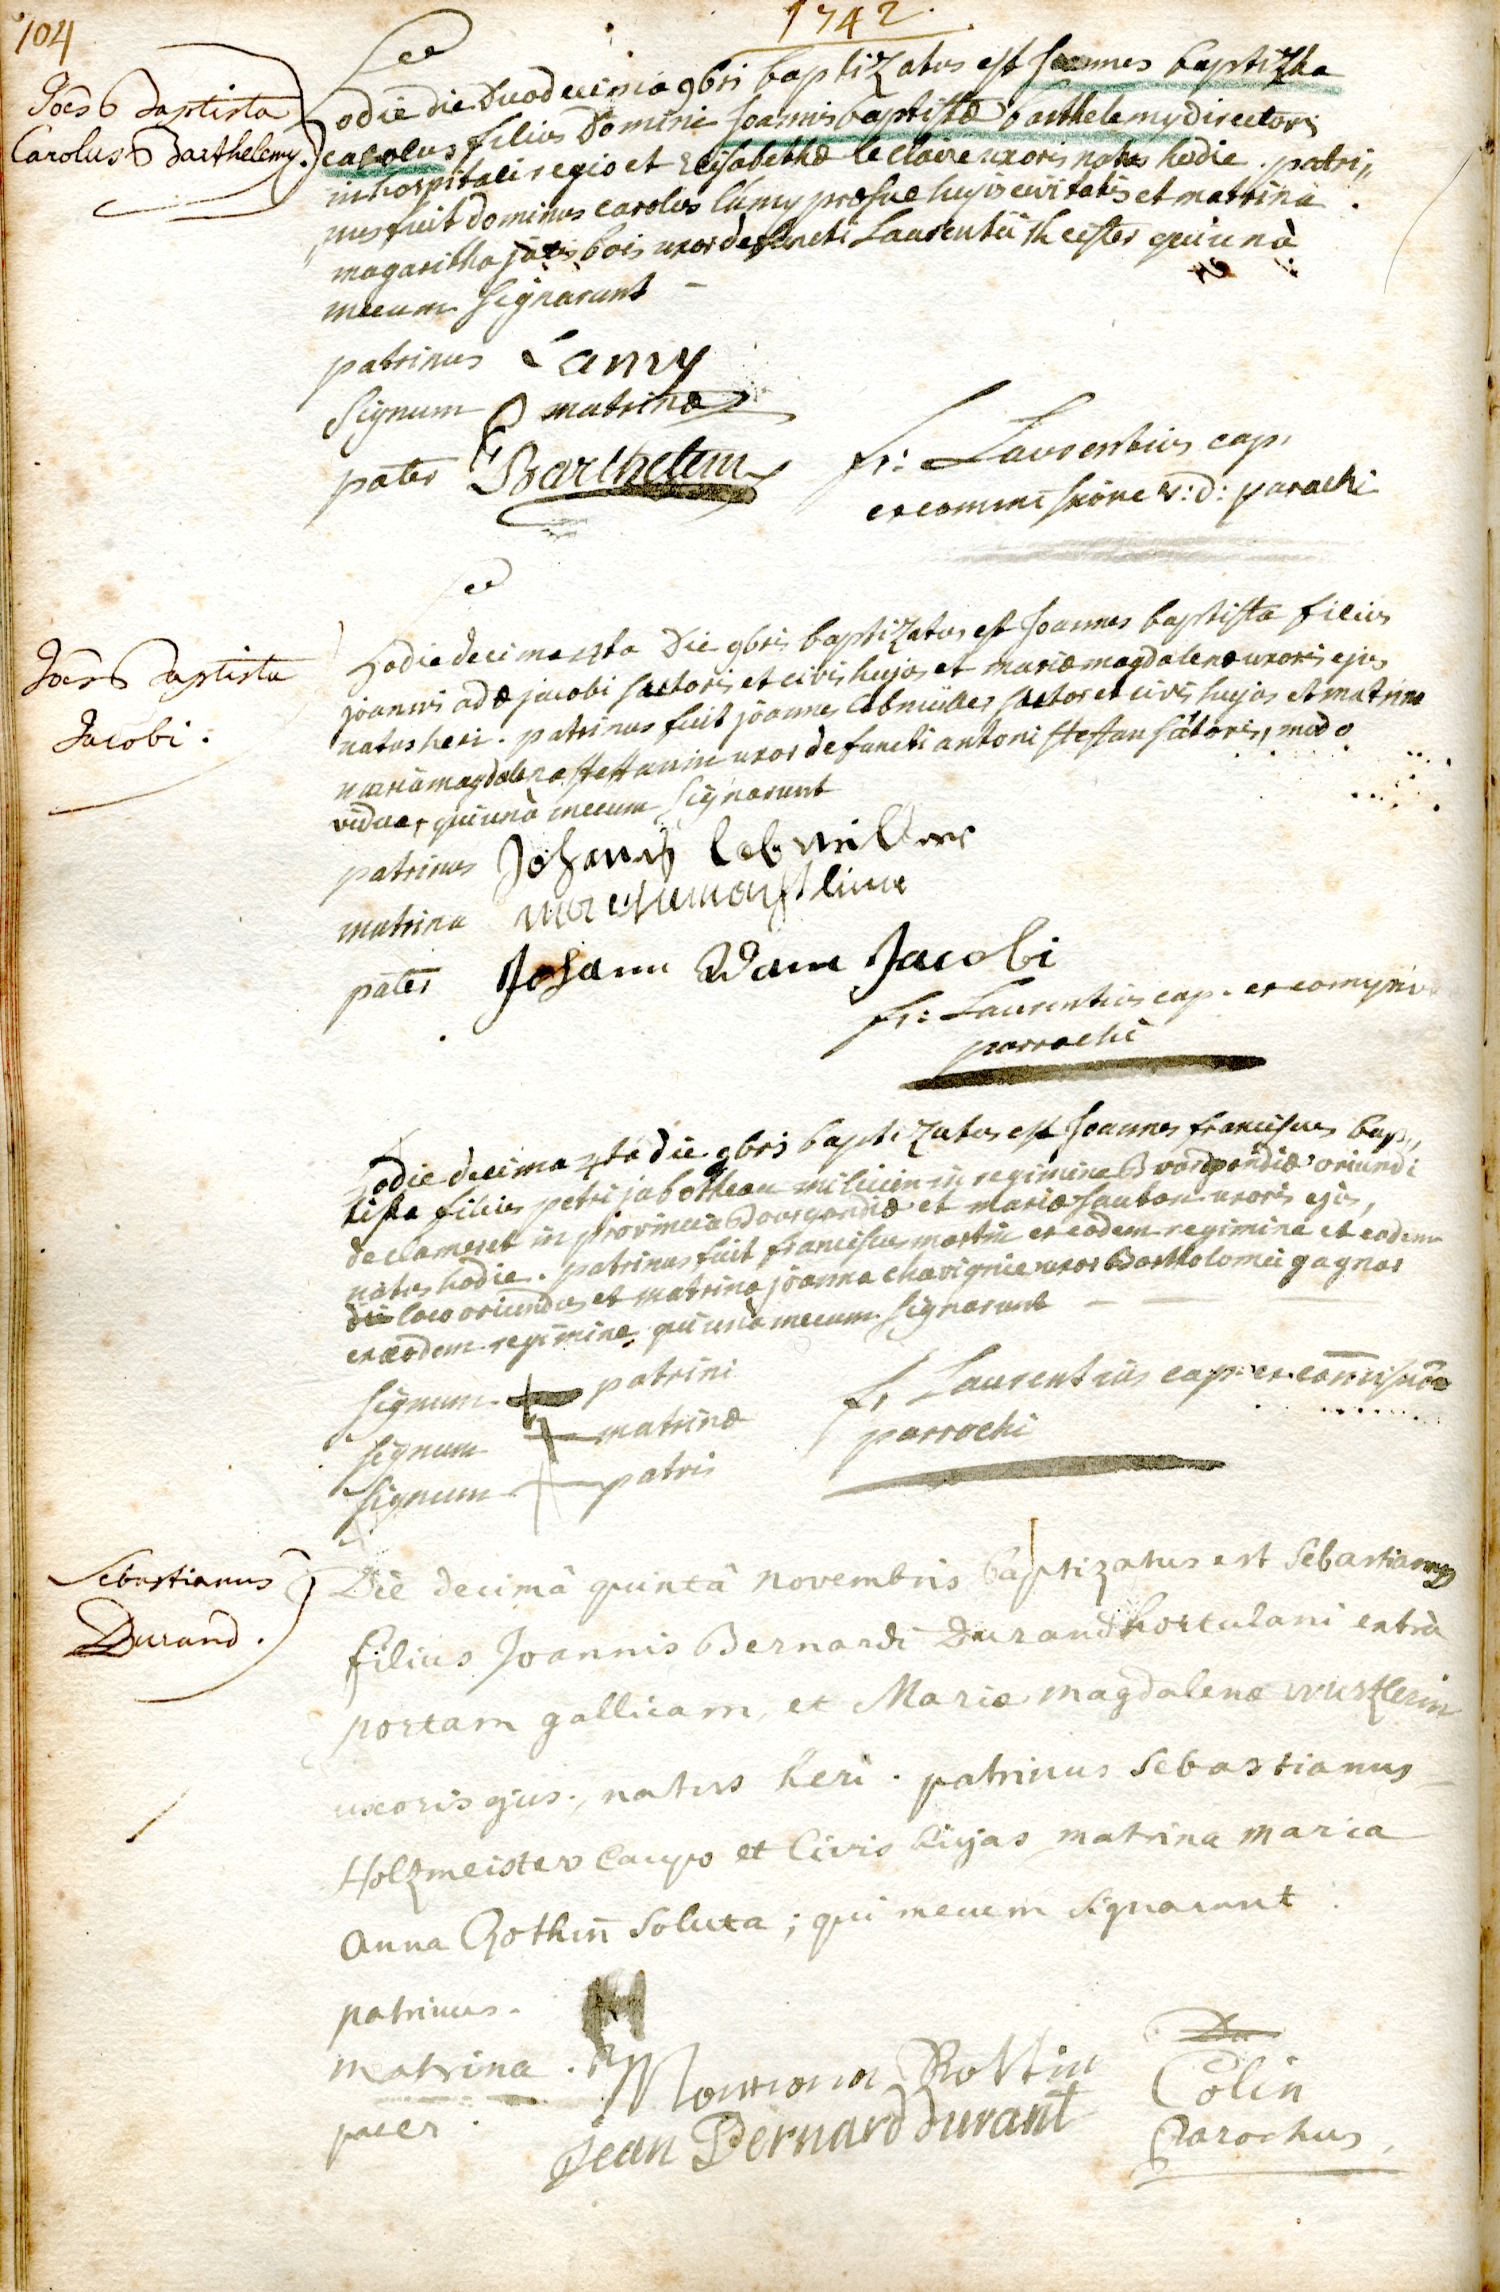 104
1742.
Joes Baptista
Carolus Barthelemy.
Hodie die duodecima 9bris baptizatus est Joannes baptistha
carolus filius Domini Joannis baptistæ barthelemy directoris
in hospitali regio et Elisabethæ le claire uxoris natus hodie. patri„
nus fuit dominus carolus lamy hujis civitatis et matrina
magaritha bois uxor defuncti Laurentii qui unà
mecum signarunt –
patrinus Lamy
Signum matrinæ
pater Barthelemy
fr: Laurentius cap.
ex commissione r: d: parochi
Joes Baptista
Jacobi.
Hodie decima 4ta Die 9bris baptizatus est Joannes baptista filius
joannis adæ jacobi sartoris et civis hujos et mariæ magdalenæ uxoris ejus
natus heri. patrinus fuit jòannes lebmiller sartor et civis hujos et matrina
maria magdalena steffannin uxor defuncti antoni steffan satoris, modo
vidua, qui unà mecum signarunt
patrinus Johanes lebmiller
matrina
pater Johann Adam Jacobi
fr: Laurentius cap. ex
parrochi
Hodie decima 4ta die 9bris baptizatus est Joannes franciscus bap„
tista filius petri jabotheau militum in regimine Bourgondiæ oriundi
de clameset in provincia Bourgondiæ et mariæ sauton uxoris ejus,
natus hodie. patrinus fuit franciscus martin ex eodem regimine et eodem
loco oriundus et matrina jòanna chavignie uxor Bartholomei gagnar
ex eodem regimine, qui unà mecum signarunt –
Signum patrini
Signum matrinæ
Signum patris
fr Laurentius cap. ex com̄issiōe
parrochi
Sebastianus
Durand.
Die decimâ quintâ novembris baptizatus est Sebastianus
filius Joannis Bernardi Durand hortulani extrà
portam gallicam, et Mariæ magdalenæ wurtzlerin
uxoris ejus, natus heri. patrinus Sebastianus
Holzmeister caupo et Civis hujas matrina maria
anna Rothin soluta; qui mecum signarunt.
patrinus.
matrina. Rottin
pater. jean Bernard durant
Colin
Parochus,